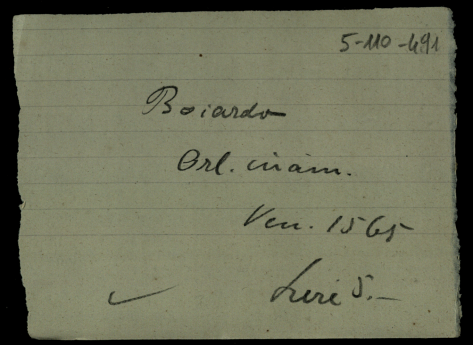 5-110-491
Boiardo
Orl. innam.
Ven. 1565
Lire 5.—